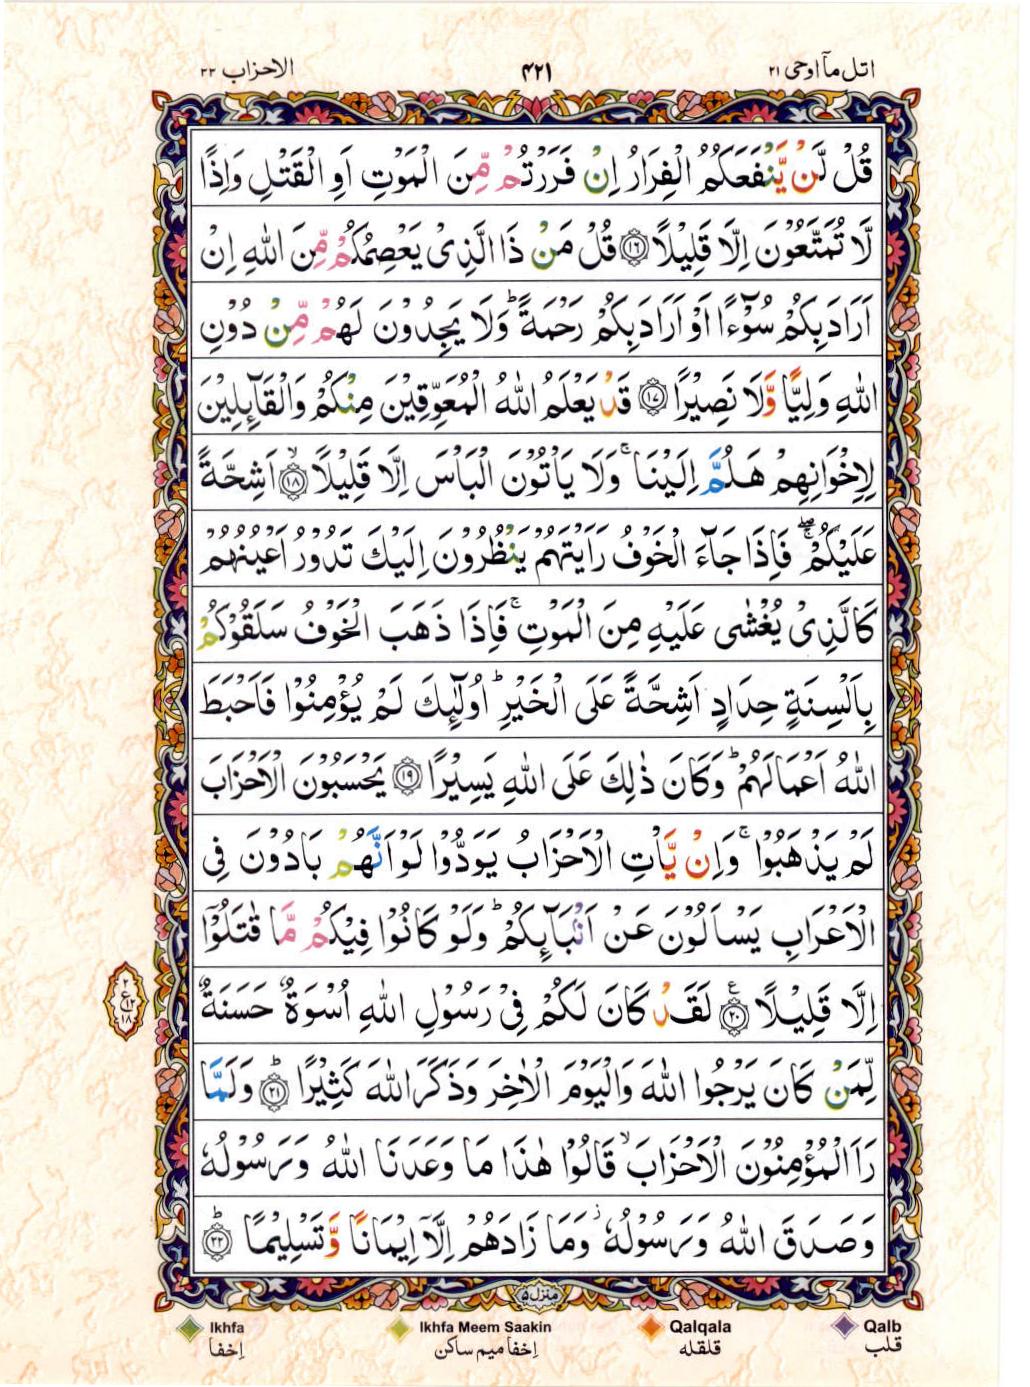 اتل مآ اوحی ۲۱
۴۲۱
الاحزاب ۳۳
قُلْ لَّنْ يَّنْفَعَكُمُ الْفِرَارُ اِنْ فَرَرْتُمْ مِّنَ الْمَوْتِ اَوِ الْقَتْلِ وَاِذًا
لَّا تُمَتَّعُوْنَ اِلَّا قَلِيْلًا ﴿۱۶﴾ قُلْ مَنْ ذَا الَّذِيْ يَعْصِمُكُمْ مِّنَ اللّٰهِ اِنْ
اَرَادَ بِكُمْ سُوْٓءًا اَوْ اَرَادَ بِكُمْ رَحْمَةً ؕ وَلَا يَجِدُوْنَ لَهُمْ مِّنْ دُوْنِ
اللّٰهِ وَلِيًّا وَّلَا نَصِيْرًا ﴿۱۷﴾ قَدْ يَعْلَمُ اللّٰهُ الْمُعَوِّقِيْنَ مِنْكُمْ وَالْقَآىِٕلِيْنَ
لِاِخْوَانِهِمْ هَلُمَّ اِلَيْنَا ۚ وَلَا يَاْتُوْنَ الْبَاْسَ اِلَّا قَلِيْلًا ۙ﴿۱۸﴾ اَشِحَّةً
عَلَيْكُمْ ۖۚ فَاِذَا جَآءَ الْخَوْفُ رَاَيْتَهُمْ يَنْظُرُوْنَ اِلَيْكَ تَدُوْرُ اَعْيُنُهُمْ
كَالَّذِيْ يُغْشٰى عَلَيْهِ مِنَ الْمَوْتِ ۚ فَاِذَا ذَهَبَ الْخَوْفُ سَلَقُوْكُمْ
بِاَلْسِنَةٍ حِدَادٍ اَشِحَّةً عَلَى الْخَيْرِ ؕ اُولٰٓىِٕكَ لَمْ يُؤْمِنُوْا فَاَحْبَطَ
اللّٰهُ اَعْمَالَهُمْ ؕ وَكَانَ ذٰلِكَ عَلَى اللّٰهِ يَسِيْرًا ﴿۱۹﴾ يَحْسَبُوْنَ الْاَحْزَابَ
لَمْ يَذْهَبُوْا ۚ وَاِنْ يَّاْتِ الْاَحْزَابُ يَوَدُّوْا لَوْ اَنَّهُمْ بَادُوْنَ فِي
الْاَعْرَابِ يَسْاَلُوْنَ عَنْ اَنْۢبَآىِٕكُمْ ؕ وَلَوْ كَانُوْا فِيْكُمْ مَّا قٰتَلُوْۤا
اِلَّا قَلِيْلًا ﴿۲۰﴾ۧ لَقَدْ كَانَ لَكُمْ فِيْ رَسُوْلِ اللّٰهِ اُسْوَةٌ حَسَنَةٌ
ع ۲ ۱۲ ۱۸
لِّمَنْ كَانَ يَرْجُوا اللّٰهَ وَالْيَوْمَ الْاٰخِرَ وَذَكَرَ اللّٰهَ كَثِيْرًا ؕ﴿۲۱﴾ وَلَمَّا
رَاَ الْمُؤْمِنُوْنَ الْاَحْزَابَ ۙ قَالُوْا هٰذَا مَا وَعَدَنَا اللّٰهُ وَرَسُوْلُهٗ
وَصَدَقَ اللّٰهُ وَرَسُوْلُهٗ ؗ وَمَا زَادَهُمْ اِلَّاۤ اِيْمَانًا وَّتَسْلِيْمًا ؕ﴿۲۲﴾
منزل ۵
Ikhfa Ikhfa Meem Saakin Qalqala Qalb
اِخفا اِخفا میم ساکن قلقله قلب